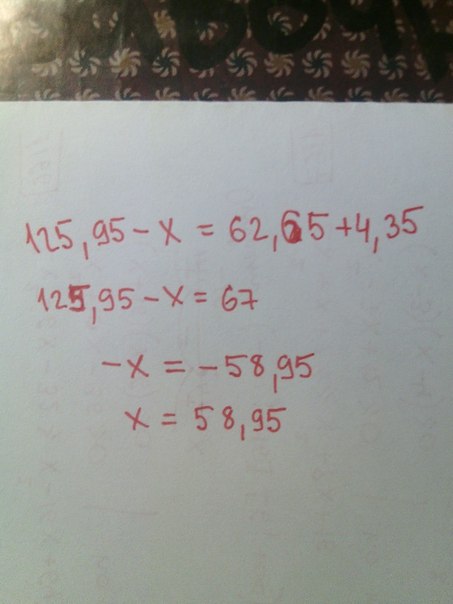 125,95 - x = 62,65 + 4,35
125,95 - x = 67
-x = -58,95
x = 58,95